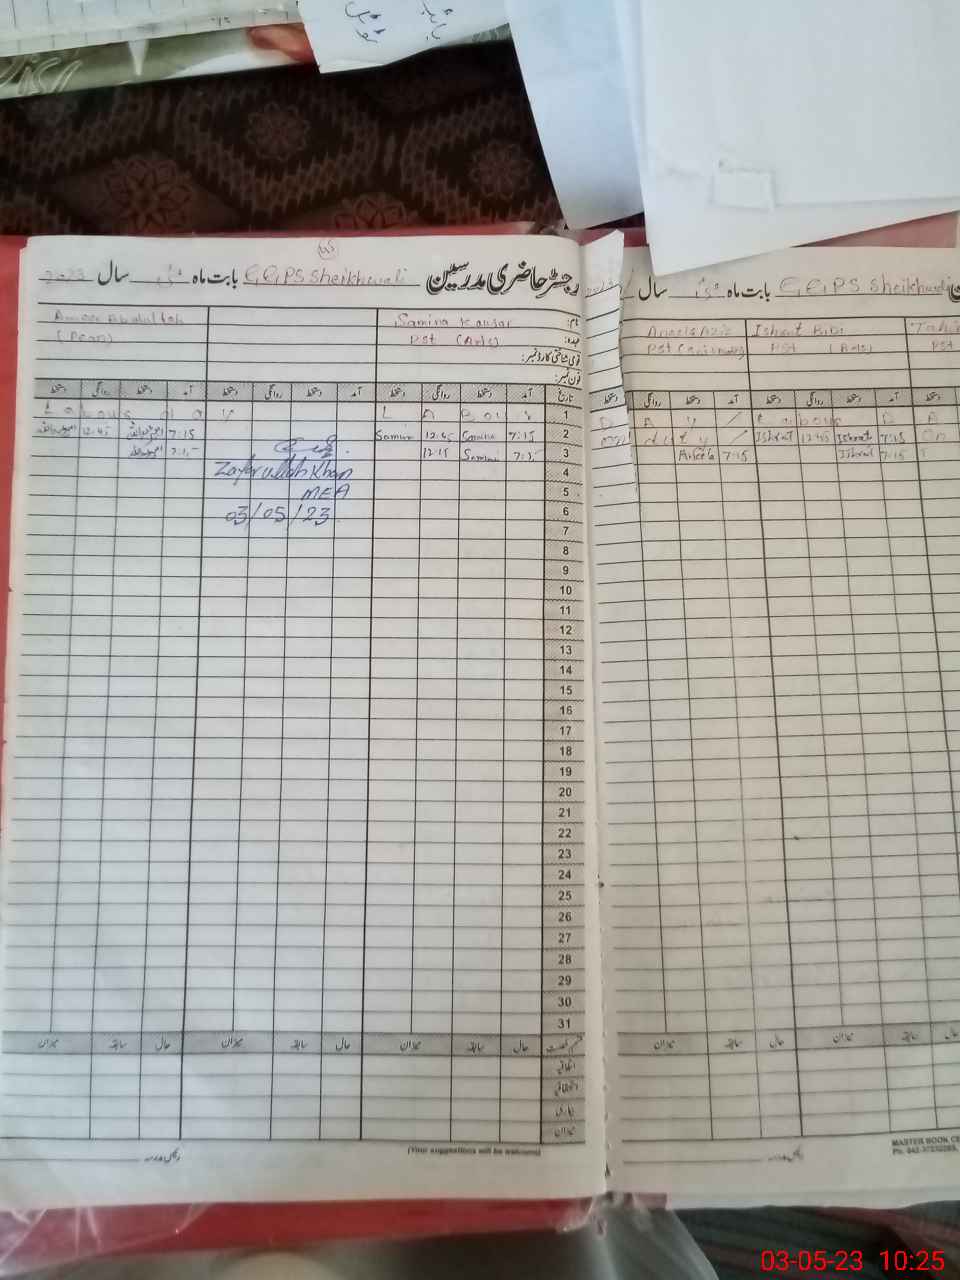 بابت
ٹوٹل
رجسٹر حاضری مدرسین G.G.PS Sheikhwali بابت ماہ مئی سال 2023
نام: Samina Kausar
Ameer Abdullah
عہدہ: PST (Arts)
(Peon)
قومی شناختی کارڈ نمبر:
فون نمبر:
تاریخ آمد دستخط روانگی دستخط آمد دستخط روانگی دستخط آمد دستخط روانگی دستخط
1 L A B o u r
Labour day
2 7:15 Samina 12:45 Samina 7:15 12:45
3 7:15 Samina 12:15
Zafarullah Khan
4
MEA
5
03/05/23
6
7
8
9
10
11
12
13
14
15
16
17
18
19
20
21
22
23
24
25
26
27
28
29
30
31
حال سابقہ میزان حال سابقہ میزان حال سابقہ میزان
اتفاقیہ
استحقاقی
بیماری
میزان
(Your suggestions will be welcomed)
دستخط مدرسہ
G.G.PS Sheikhwali بابت ماہ مئی سال
Aneela Aziz Ishrat Bibi
PST (Arts) PST
آمد دستخط روانگی دستخط آمد دستخط روانگی دستخط
D A Y Labour D A
on duty Ishrat 12:45 Ishrat 7:15 On
Aneela 7:15 Ishrat 7:15
سابقہ میزان حال سابقہ میزان
دستخط مدرسہ
MASTER BOOK CE
Ph. 042-37232265,
03-05-23 10:25